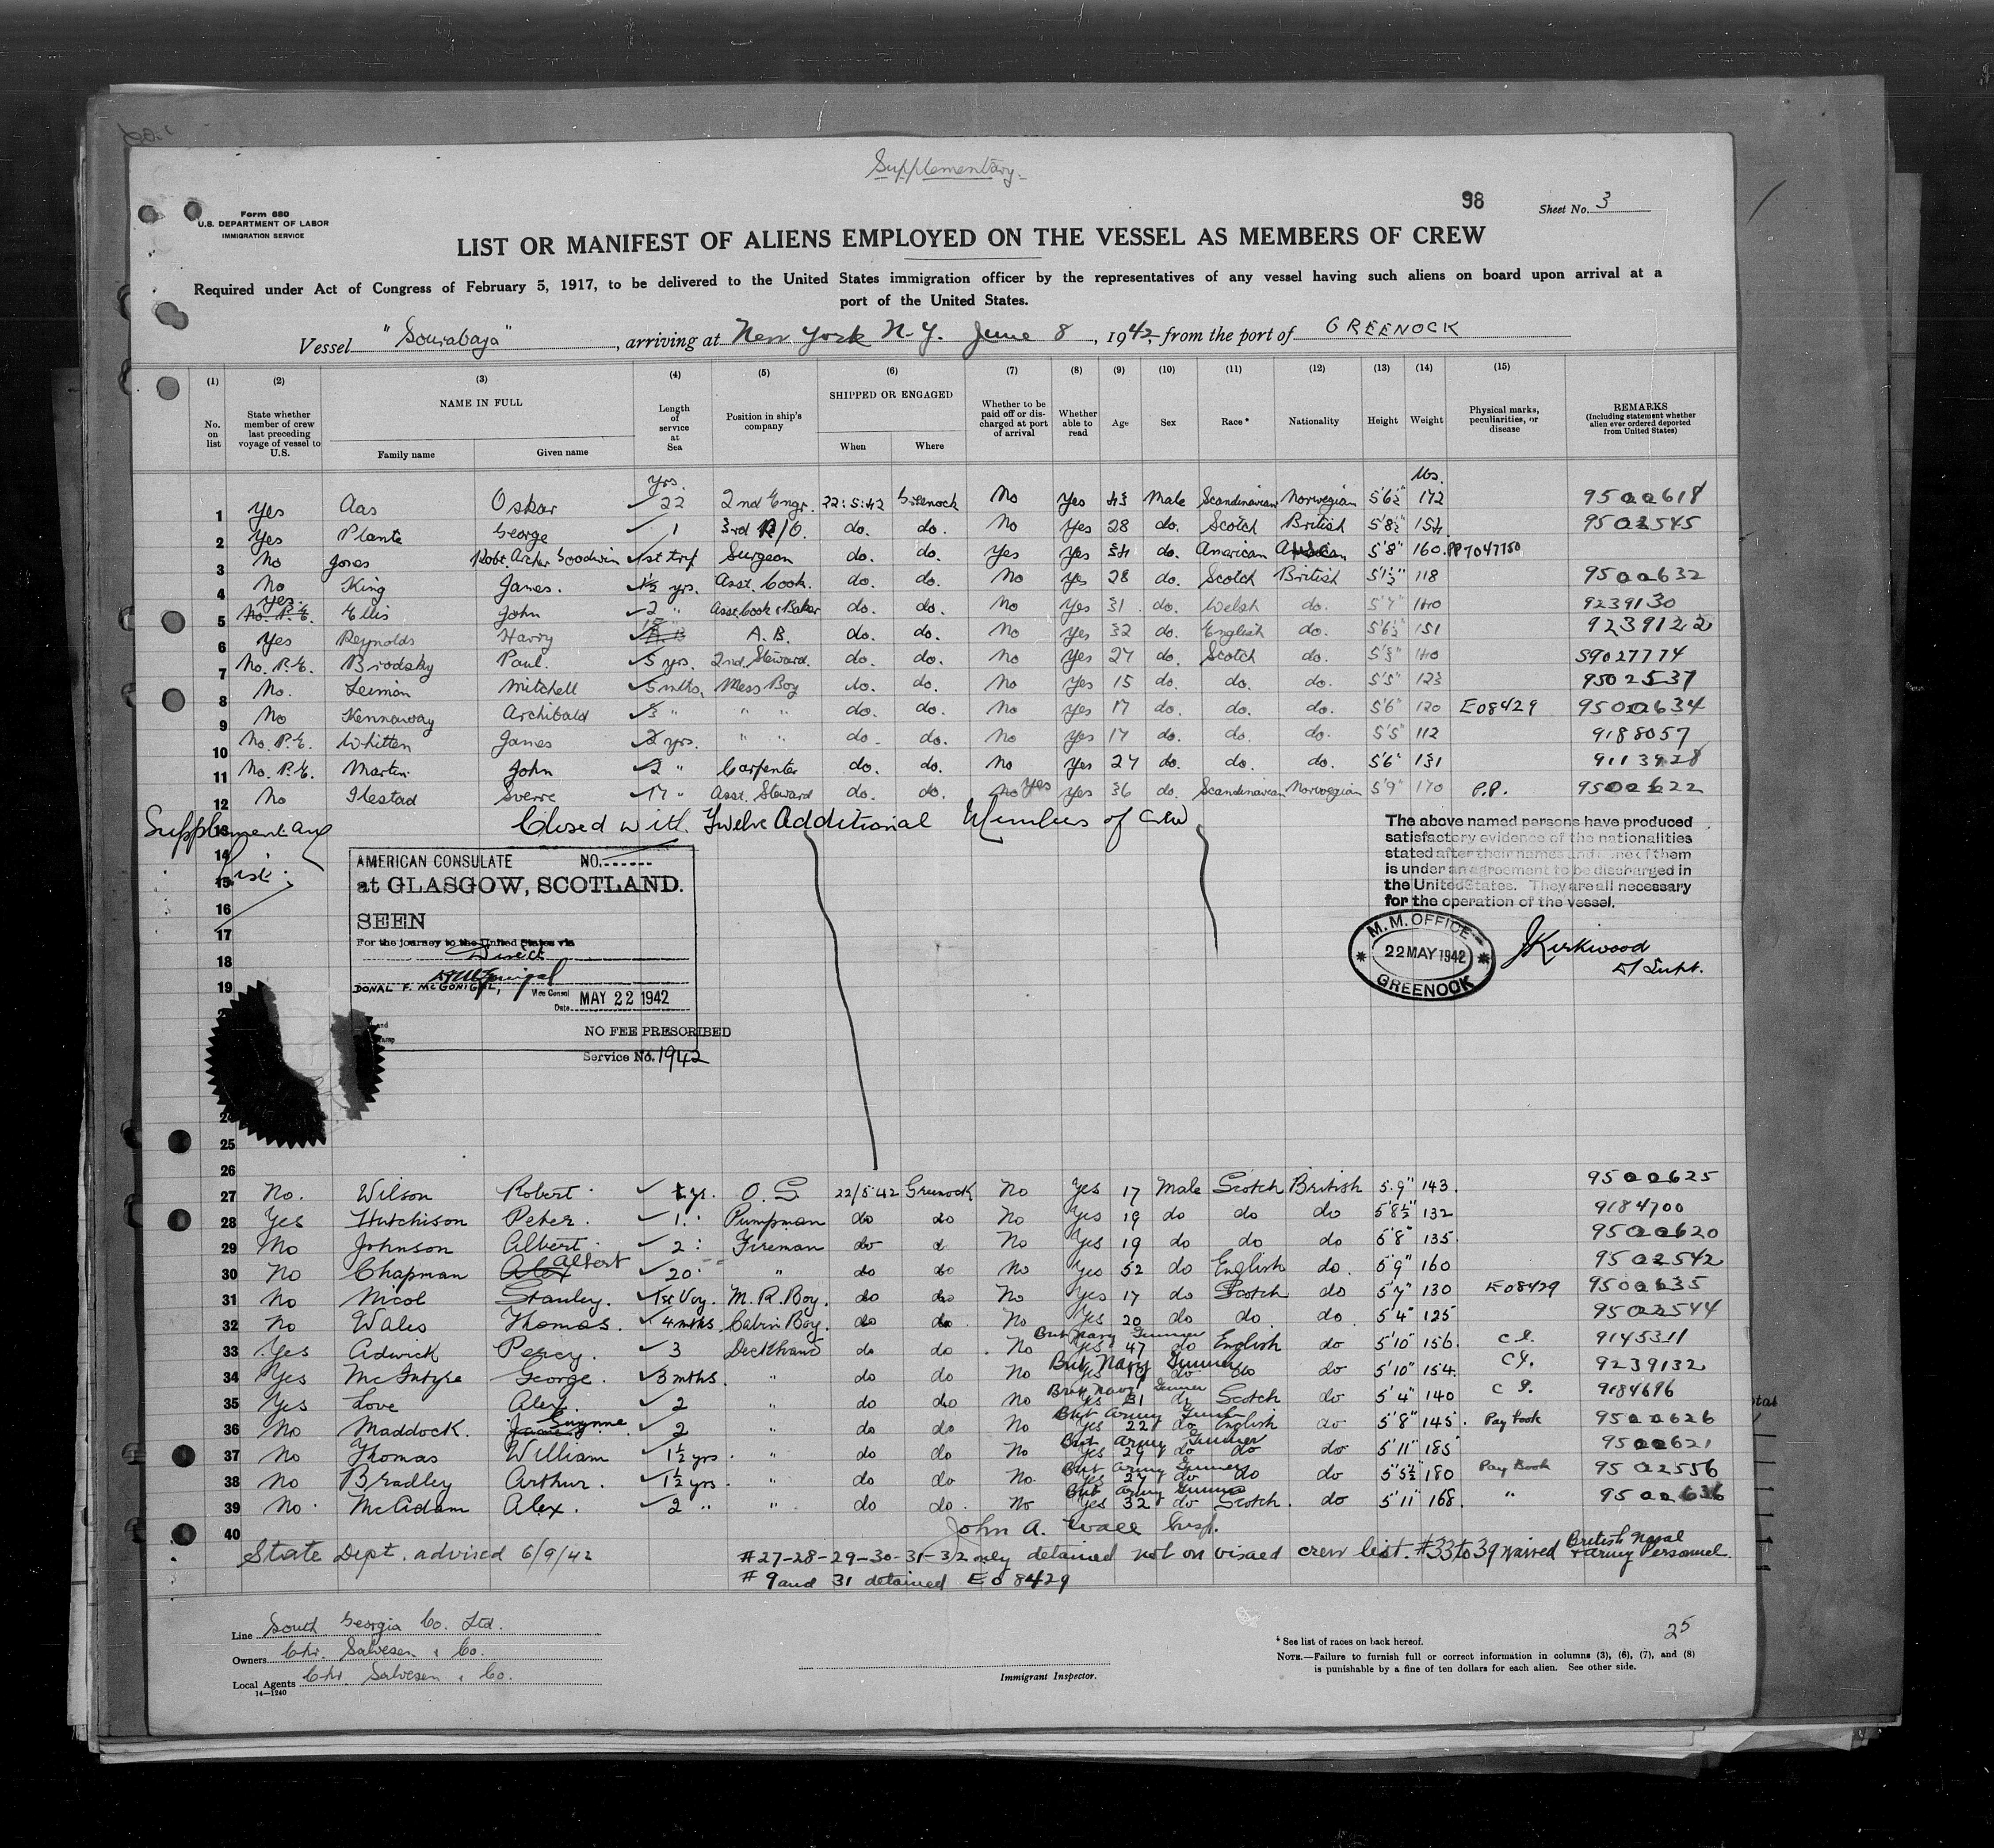 Supplementary.
98
Sheet No. 3
Form 680
U.S. DEPARTMENT OF LABOR
IMMIGRATION SERVICE
LIST OR MANIFEST OF ALIENS EMPLOYED ON THE VESSEL AS MEMBERS OF CREW
Required under Act of Congress of February 5, 1917, to be delivered to the United States immigration officer by the representatives of any vessel having such aliens on board upon arrival at a
port of the United States.
Vessel "Sourabaya", arriving at New York N.Y. June 8, 1942, from the port of GREENOCK
(1) (2) (3) (4) (5) (6) (7) (8) (9) (10) (11) (12) (13) (14) (15)
No. on list
State whether member of crew last preceding voyage of vessel to U.S.
NAME IN FULL
Family name
Given name
Length of service at Sea
Position in ship's company
SHIPPED OR ENGAGED
When
Where
Whether to be paid off or discharged at port of arrival
Whether able to read
Age
Sex
Race*
Nationality
Height
Weight
Physical marks, peculiarities, or disease
REMARKS
(Including statement whether alien ever ordered deported from United States)
yrs. lbs.
1 Yes Aas Oskar 22 2nd Engr. 22:5:42 Greenock No Yes 43 Male Scandinavian Norwegian 5'6½" 172 9500618
2 Yes Plante George 1 3rd R/O. do. do. No Yes 28 do. Scotch British 5'8½" 154 9502545
3 No Jones Robt. Archer Goodwin 1st trip Surgeon do. do. Yes Yes 34 do. American American 5'8" 160 PP7047150
4 No King James. 1½ yrs. Asst. Cook. do. do. No Yes 28 do. Scotch British 5'1½" 118 9500632
5 Yes No. P.E. Ellis John 2 " Asst. Cook & Baker do. do. No Yes 31 do. Welsh do. 5'7" 140 9239130
6 Yes Reynolds Harry A.B. do. do. No Yes 32 do. English do. 5'6½" 151 9239122
7 No. P.E. Brodsky Paul. 5 yrs. 2nd. Steward. do. do. No Yes 27 do. Scotch do. 5'3" 140 59027774
8 No. Leiman Mitchell 5 mths. Mess Boy do. do. No Yes 15 do. do. do. 5'5" 123 9502537
9 No Kennaway Archibald 3 " " " do. do. No Yes 17 do. do. do. 5'6" 120 E08429 9500634
10 No. P.E. Whitten James 2 yrs. " " do. do. No Yes 17 do. do. do. 5'5" 112 9188057
11 No. P.E. Martin John 2 " Carpenter do. do. No Yes 27 do. do. do. 5'6" 131 9113928
12 No Ilestad Sverre 17 " Asst. Steward do. do. No Yes Yes 36 do. Scandinavian Norwegian 5'9" 170 P.P. 9500622
13 Supplementary Closed with Twelve Additional Members of Crew
14
15 List.
16
17
18
19
AMERICAN CONSULATE NO.
at GLASGOW, SCOTLAND.
SEEN
For the journey to the United States via
Direct
DONAL F. McGONIGAL,
Vice Consul
Date MAY 22 1942
NO FEE PRESCRIBED
Service No. 1942
The above named persons have produced
satisfactory evidence of the nationalities
stated after their names and none of them
is under an agreement to be discharged in
the United States. They are all necessary
for the operation of the vessel.
M. M. OFFICE
22 MAY 1942
GREENOCK
J Kirkwood
D/ Supt.
25
26
27 No. Wilson Robert 1 yr. O.S 22/5 42 Greenock No Yes 17 Male Scotch British 5'9" 143. 9500625
28 Yes Hutchison Peter. 1. Pumpman do do No Yes 19 do do do 5'8½" 132 9184700
29 No Johnson Albert 2 Fireman do do No Yes 19 do do do 5'8" 135 9500620
30 No Chapman Alex Albert 20 " do do No Yes 52 do English do. 5'9" 160 9502542
31 No Nicol Stanley. 1st Voy. M.R. Boy. do do No Yes 17 do Scotch do 5'7" 130 E08429 9500635
32 No Wales Thomas. 4 mths. Cabin Boy. do do No Yes 20 do do do. 5'4" 125 9502544
33 Yes Adwick Percy. 3 Deckhand do do No Brit Navy Gunner Yes 47 do English do 5'10" 156. 9145311
34 Yes McIntyre George. 3 mths. " do do No Brit Navy Gunner Yes 19 do do do 5'10" 154. 9239132
35 Yes Love Alex. 2 " do do No Brit Navy Gunner Yes 31 do Scotch do 5'4" 140 9184696
36 No Maddock. 2 " do do No Brit Army Gunner Yes 22 do English do 5'8" 145. Pay book 9500626
37 No Thomas William 1½ yrs. " do do No Brit Army Gunner Yes 29 do do do 5'11" 185 9500621
38 No Bradley Arthur. 1½ yrs. " do do No. Brit Army Gunner Yes 27 do do do 5'5½" 180 Pay Book 9502556
39 No. McAdam Alex. 2 " " do do. No Brit Army Gunner Yes 32 do Scotch. do 5'11" 168. " 9500636
40 John A. Wall Insp.
State Dept. advised 6/9/42 #27-28-29-30-31-32 only detained not on visaed crew list. #33 to 39 waived British Naval & Army Personnel.
# 9 and 31 detained EO 8429
Line South Georgia Co. Ltd.
Owners Chr. Salvesen & Co.
Local Agents Chr. Salvesen & Co.
14—1240
Immigrant Inspector.
25
* See list of races on back hereof.
NOTE.—Failure to furnish full or correct information in columns (3), (6), (7), and (8)
is punishable by a fine of ten dollars for each alien. See other side.